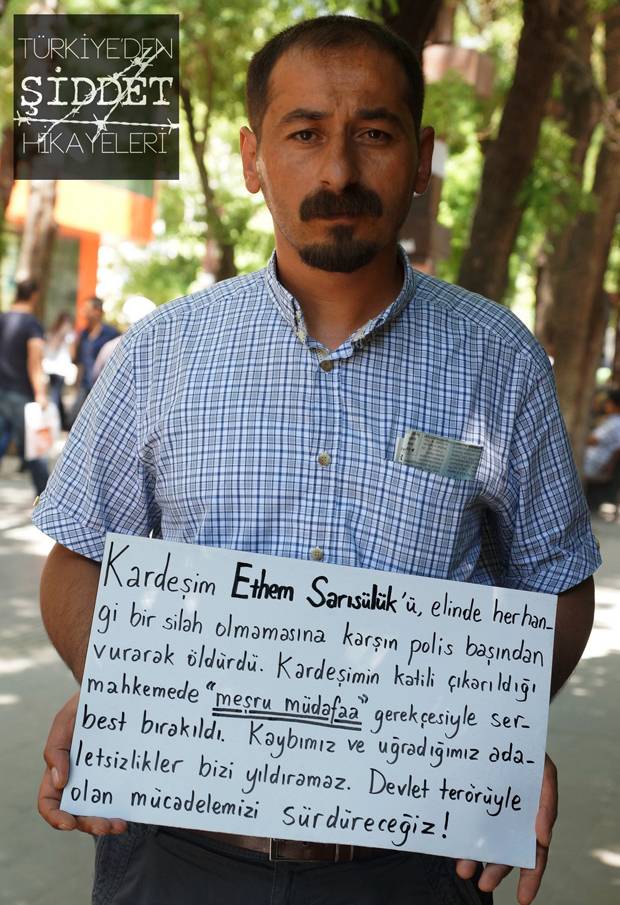 TÜRKİYE'DEN
ŞİDDET
HİKAYELERİ
Kardeşim Ethem Sarısülük'ü, elinde herhan-
gi bir silah olmamasına karşın polis başından
vurarak öldürdü. Kardeşimin katili çıkarıldığı
mahkemede "meşru müdafaa" gerekçesiyle ser-
best bırakıldı. Kaybımız ve uğradığımız ada-
letsizlikler bizi yıldıramaz. Devlet terörüyle
olan mücadelemizi sürdüreceğiz!